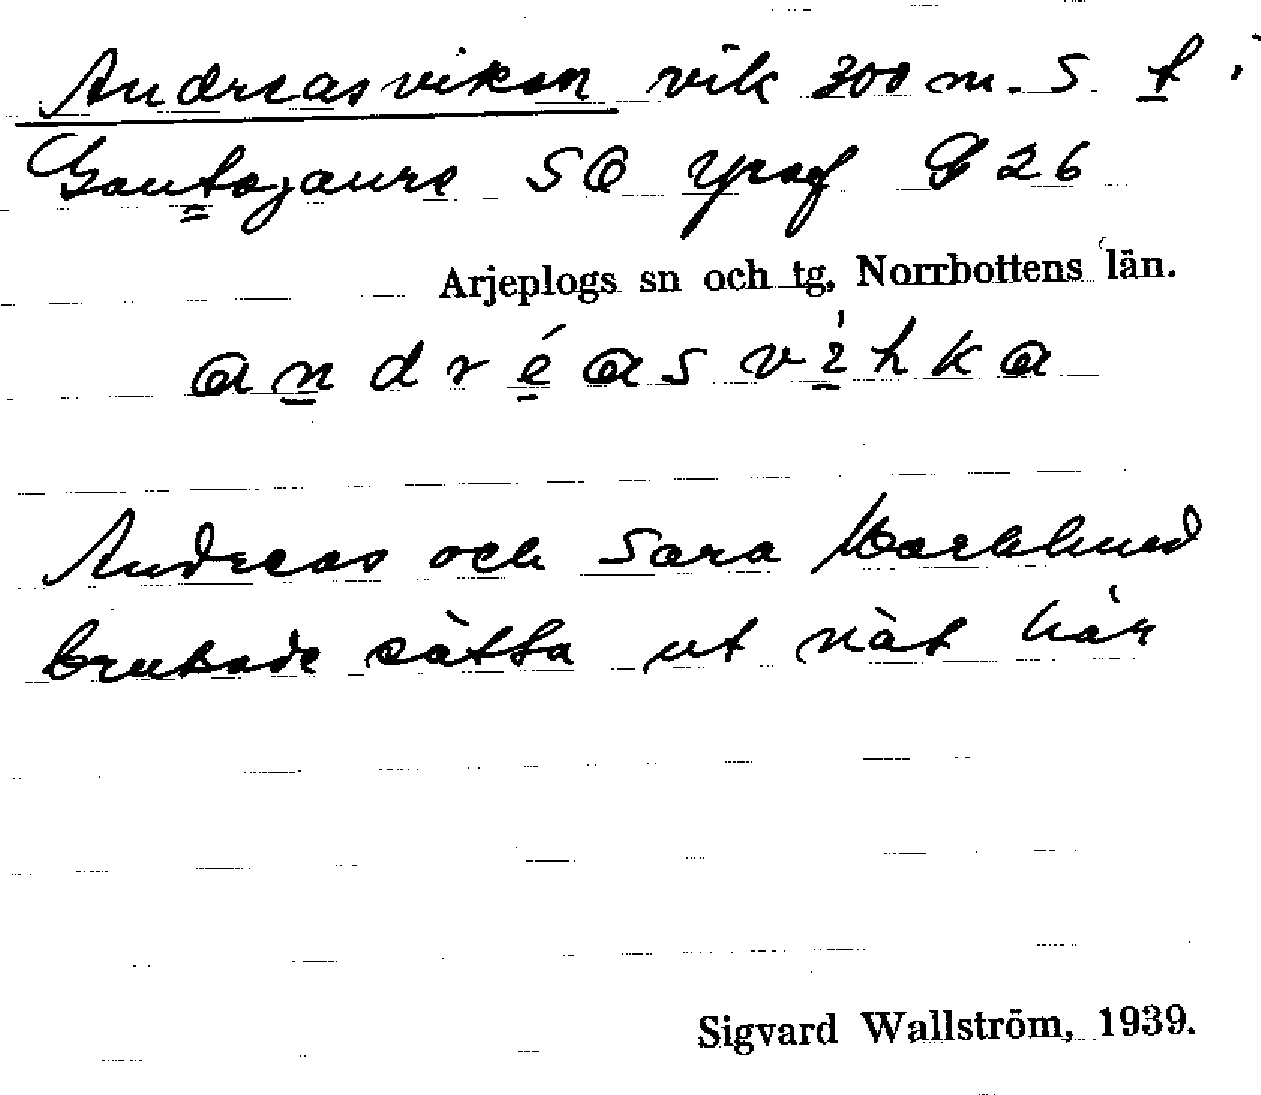 Andreasviken vik 300 m. S. t i
Gautojaure SO
Arjeplogs sn och tg, Norrbottens län.
andréasvíhka
Andreas och Sara Marklund
brukade sätta ut nät här
Sigvard Wallström, 1939.